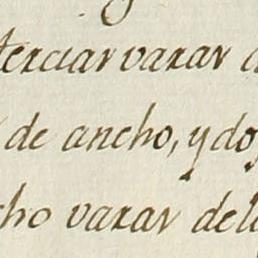 tercias varas d
de ancho, y dos
cho varas de l